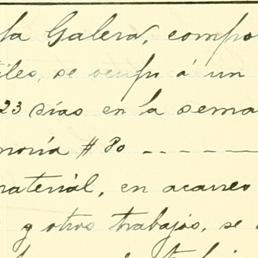 la Galera, compo
tiles, se ocupó á un
23 días en la sema
moria # 30 -----
material, en acarreo
y otros trabajos, se